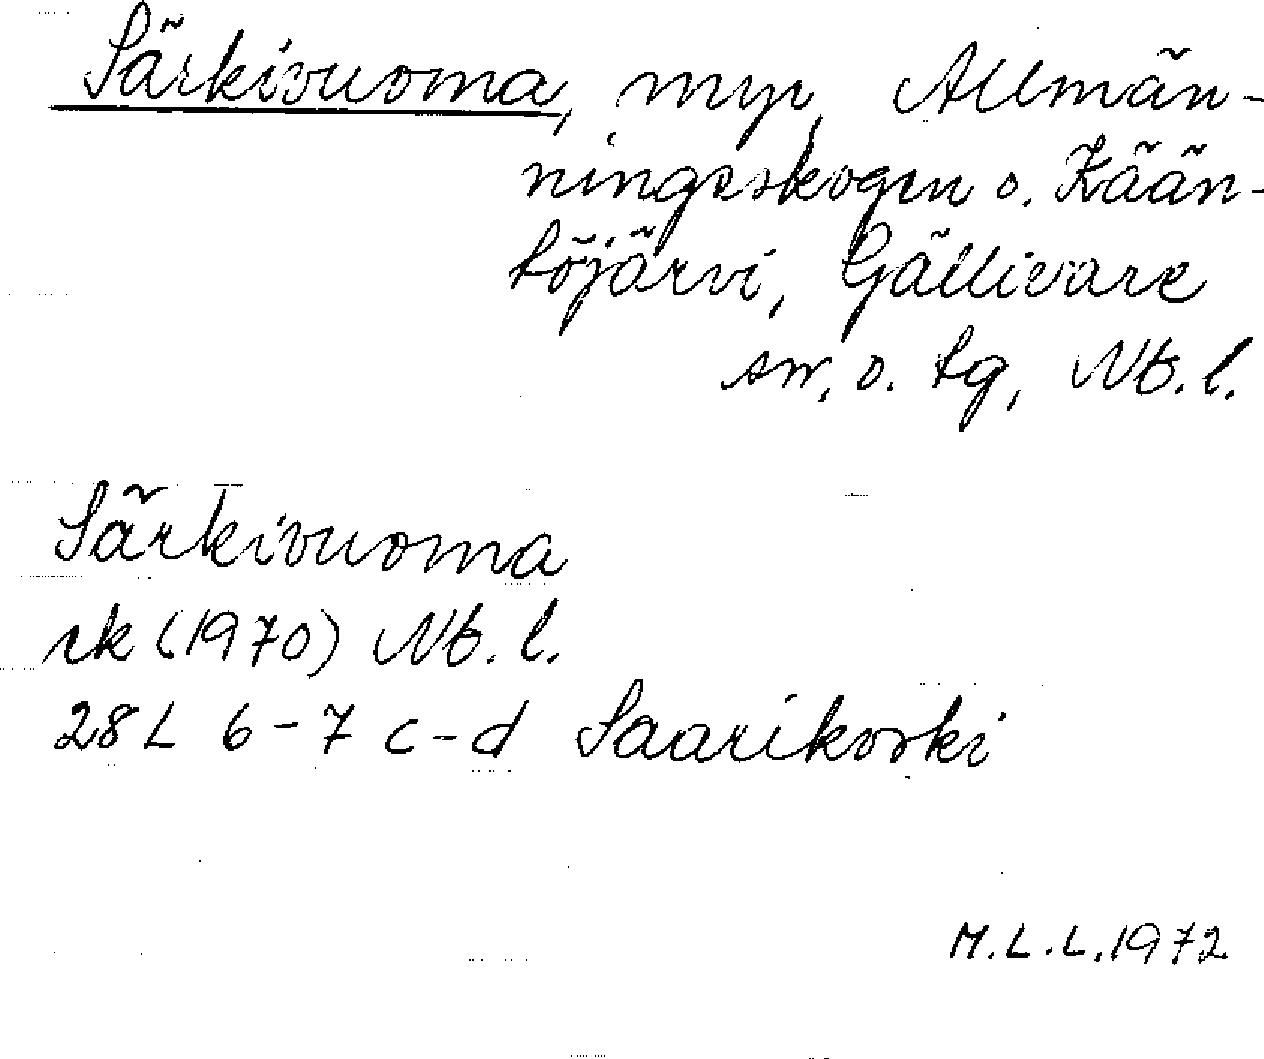 Särkivuoma, myr, Allmän-
ningsskogen o. Kään-
töjärvi, Gällivare
sn, o. tg, Nb. l.
Särkivuoma
rk (1970) Nb. l.
28L 6-7 c-d Saarikoski
M.L.L. 1972